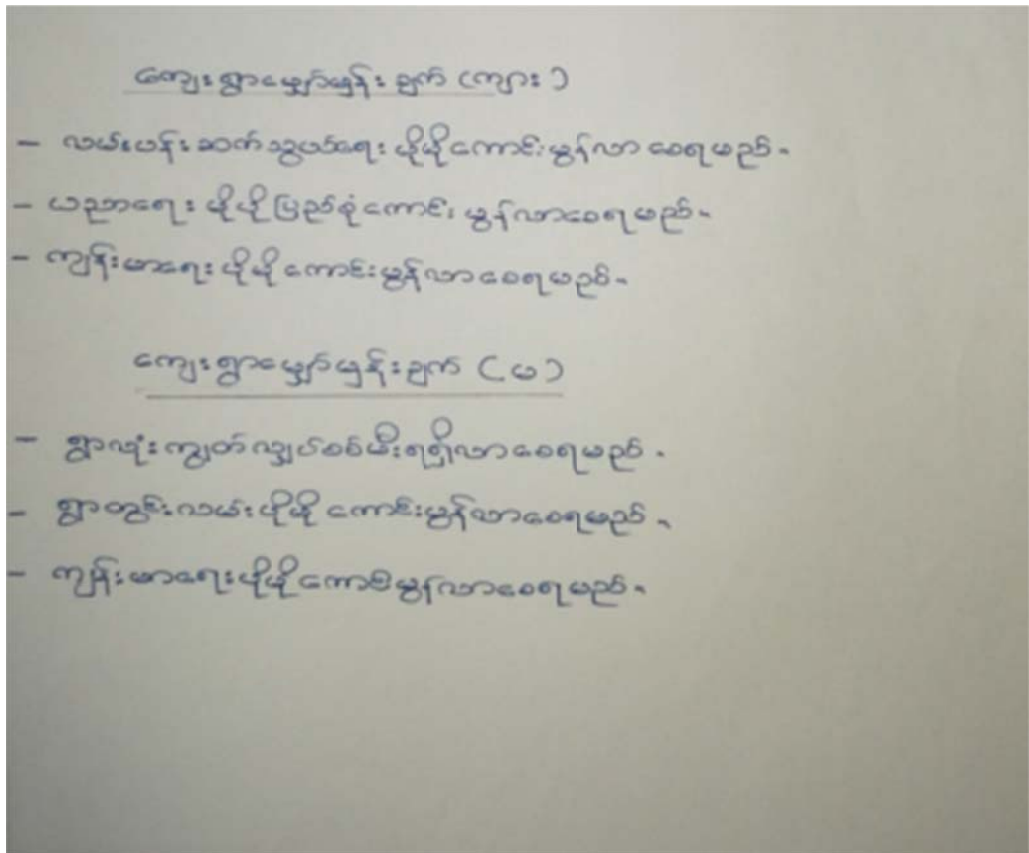 ကျေးရွာမျှော်မှန်းချက် (ကျား)
- လမ်းပန်းဆက်သွယ်ရေးပိုမိုကောင်းမွန်လာစေရမည်။
- ပညာရေးပိုမိုပြည့်စုံကောင်းမွန်လာစေရမည်။
- ကျန်းမာရေးပိုမိုကောင်းမွန်လာစေရမည်။
ကျေးရွာမျှော်မှန်းချက် (မ)
- ရွာလုံးကျွတ်လျှပ်စစ်မီးရရှိလာစေရမည်။
- ရွာတွင်းလမ်းပိုမိုကောင်းမွန်လာစေရမည်။
- ကျန်းမာရေးပိုမိုကောင်းမွန်လာစေရမည်။